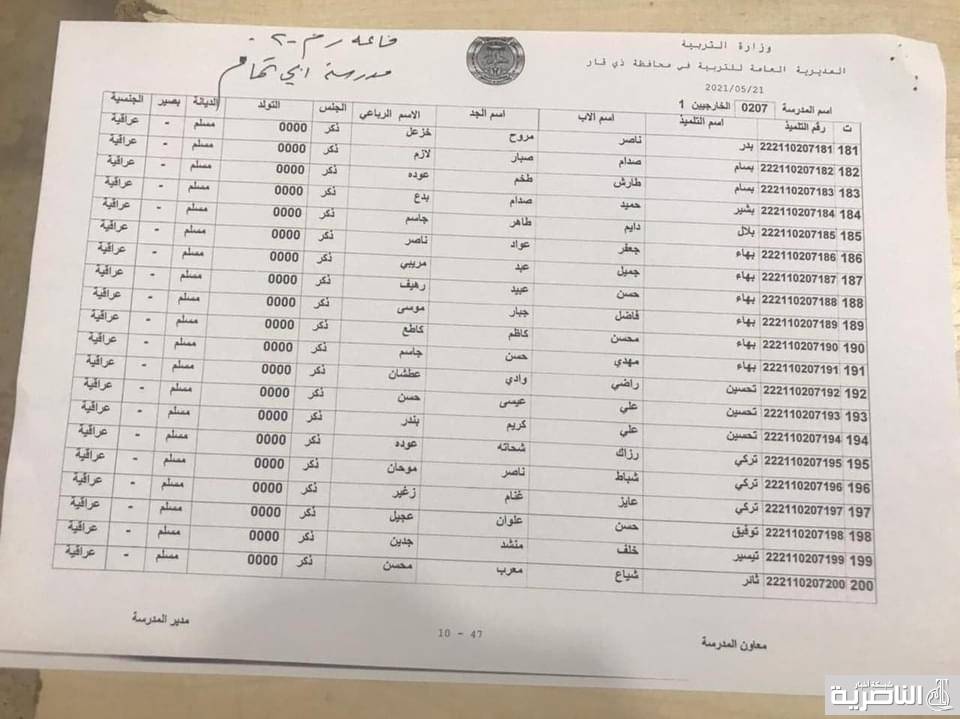 قاعه رقم -٢-
مدرسة ابي تمام
وزارة التربية
المديرية العامة للتربية في محافظة ذي قار
2021/05/21
اسم المدرسة 0207 الخارجيين 1
ت رقم التلميذ اسم التلميذ اسم الاب اسم الجد الاسم الرباعي الجنس التولد الديانة بصير الجنسية
181 222110207181 بدر ناصر مروح خزعل ذكر 0000 مسلم - عراقية
182 222110207182 بسام صدام صبار لازم ذكر 0000 مسلم - عراقية
183 222110207183 بسام طارش طخم عوده ذكر 0000 مسلم - عراقية
184 222110207184 بشير حميد صدام بدع ذكر 0000 مسلم - عراقية
185 222110207185 بلال دايم طاهر جاسم ذكر 0000 مسلم - عراقية
186 222110207186 بهاء جعفر عواد ناصر ذكر 0000 مسلم - عراقية
187 222110207187 بهاء جميل عبد مريبي ذكر 0000 مسلم - عراقية
188 222110207188 بهاء حسن عبيد رهيف ذكر 0000 مسلم - عراقية
189 222110207189 بهاء فاضل جبار موسى ذكر 0000 مسلم - عراقية
190 222110207190 بهاء محسن كاظم كاطع ذكر 0000 مسلم - عراقية
191 222110207191 بهاء مهدي حسن جاسم ذكر 0000 مسلم - عراقية
192 222110207192 تحسين راضي وادي عطشان ذكر 0000 مسلم - عراقية
193 222110207193 تحسين علي عيسى حسن ذكر 0000 مسلم - عراقية
194 222110207194 تحسين علي كريم بندر ذكر 0000 مسلم - عراقية
195 222110207195 تركي رزاك شحاته عوده ذكر 0000 مسلم - عراقية
196 222110207196 تركي شباط ناصر موحان ذكر 0000 مسلم - عراقية
197 222110207197 تركي عايز غنام زغير ذكر 0000 مسلم - عراقية
198 222110207198 توفيق حسن علوان عجيل ذكر 0000 مسلم - عراقية
199 222110207199 تيسير خلف منشد جدين ذكر 0000 مسلم - عراقية
200 222110207200 ثائر شياع معرب محسن ذكر 0000 مسلم - عراقية
معاون المدرسة
10 - 47
مدير المدرسة
شبكة أخبار
الناصرية